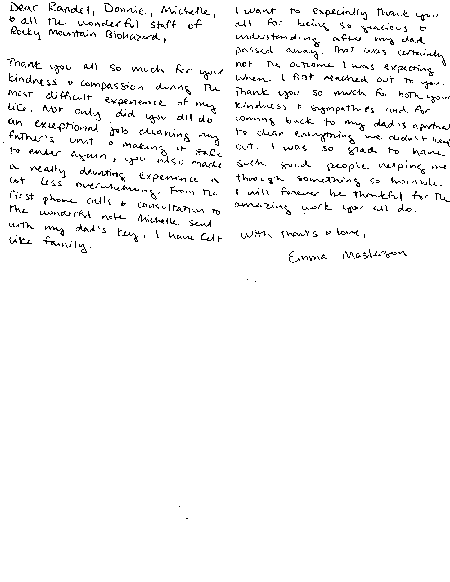 Dear Randel, Donnie, Michelle,
& all the wonderful staff of
Rocky Mountain Biohazard,
Thank you all so much for your
kindness & compassion during the
most difficult experience of my
life. Not only did you all do
an exceptional job cleaning my
father's unit & making it safe
to enter again, you also made
a really daunting experience a
lot less overwhelming. From the
first phone calls & consultation to
the wonderful note Michelle sent
with my dad's key, I have felt
like family.
I want to especially thank you
all for being so gracious &
understanding after my dad
passed away. That was certainly
not the outcome I was expecting
when I first reached out to you.
Thank you so much for both your
kindness & sympathies and for
coming back to my dad's apartment
to clear everything we didn't
out. I was so glad to have
such kind people helping me
through something so horrible.
I will forever be thankful for the
amazing work you all do.
With thanks & love,
Emma Masterson